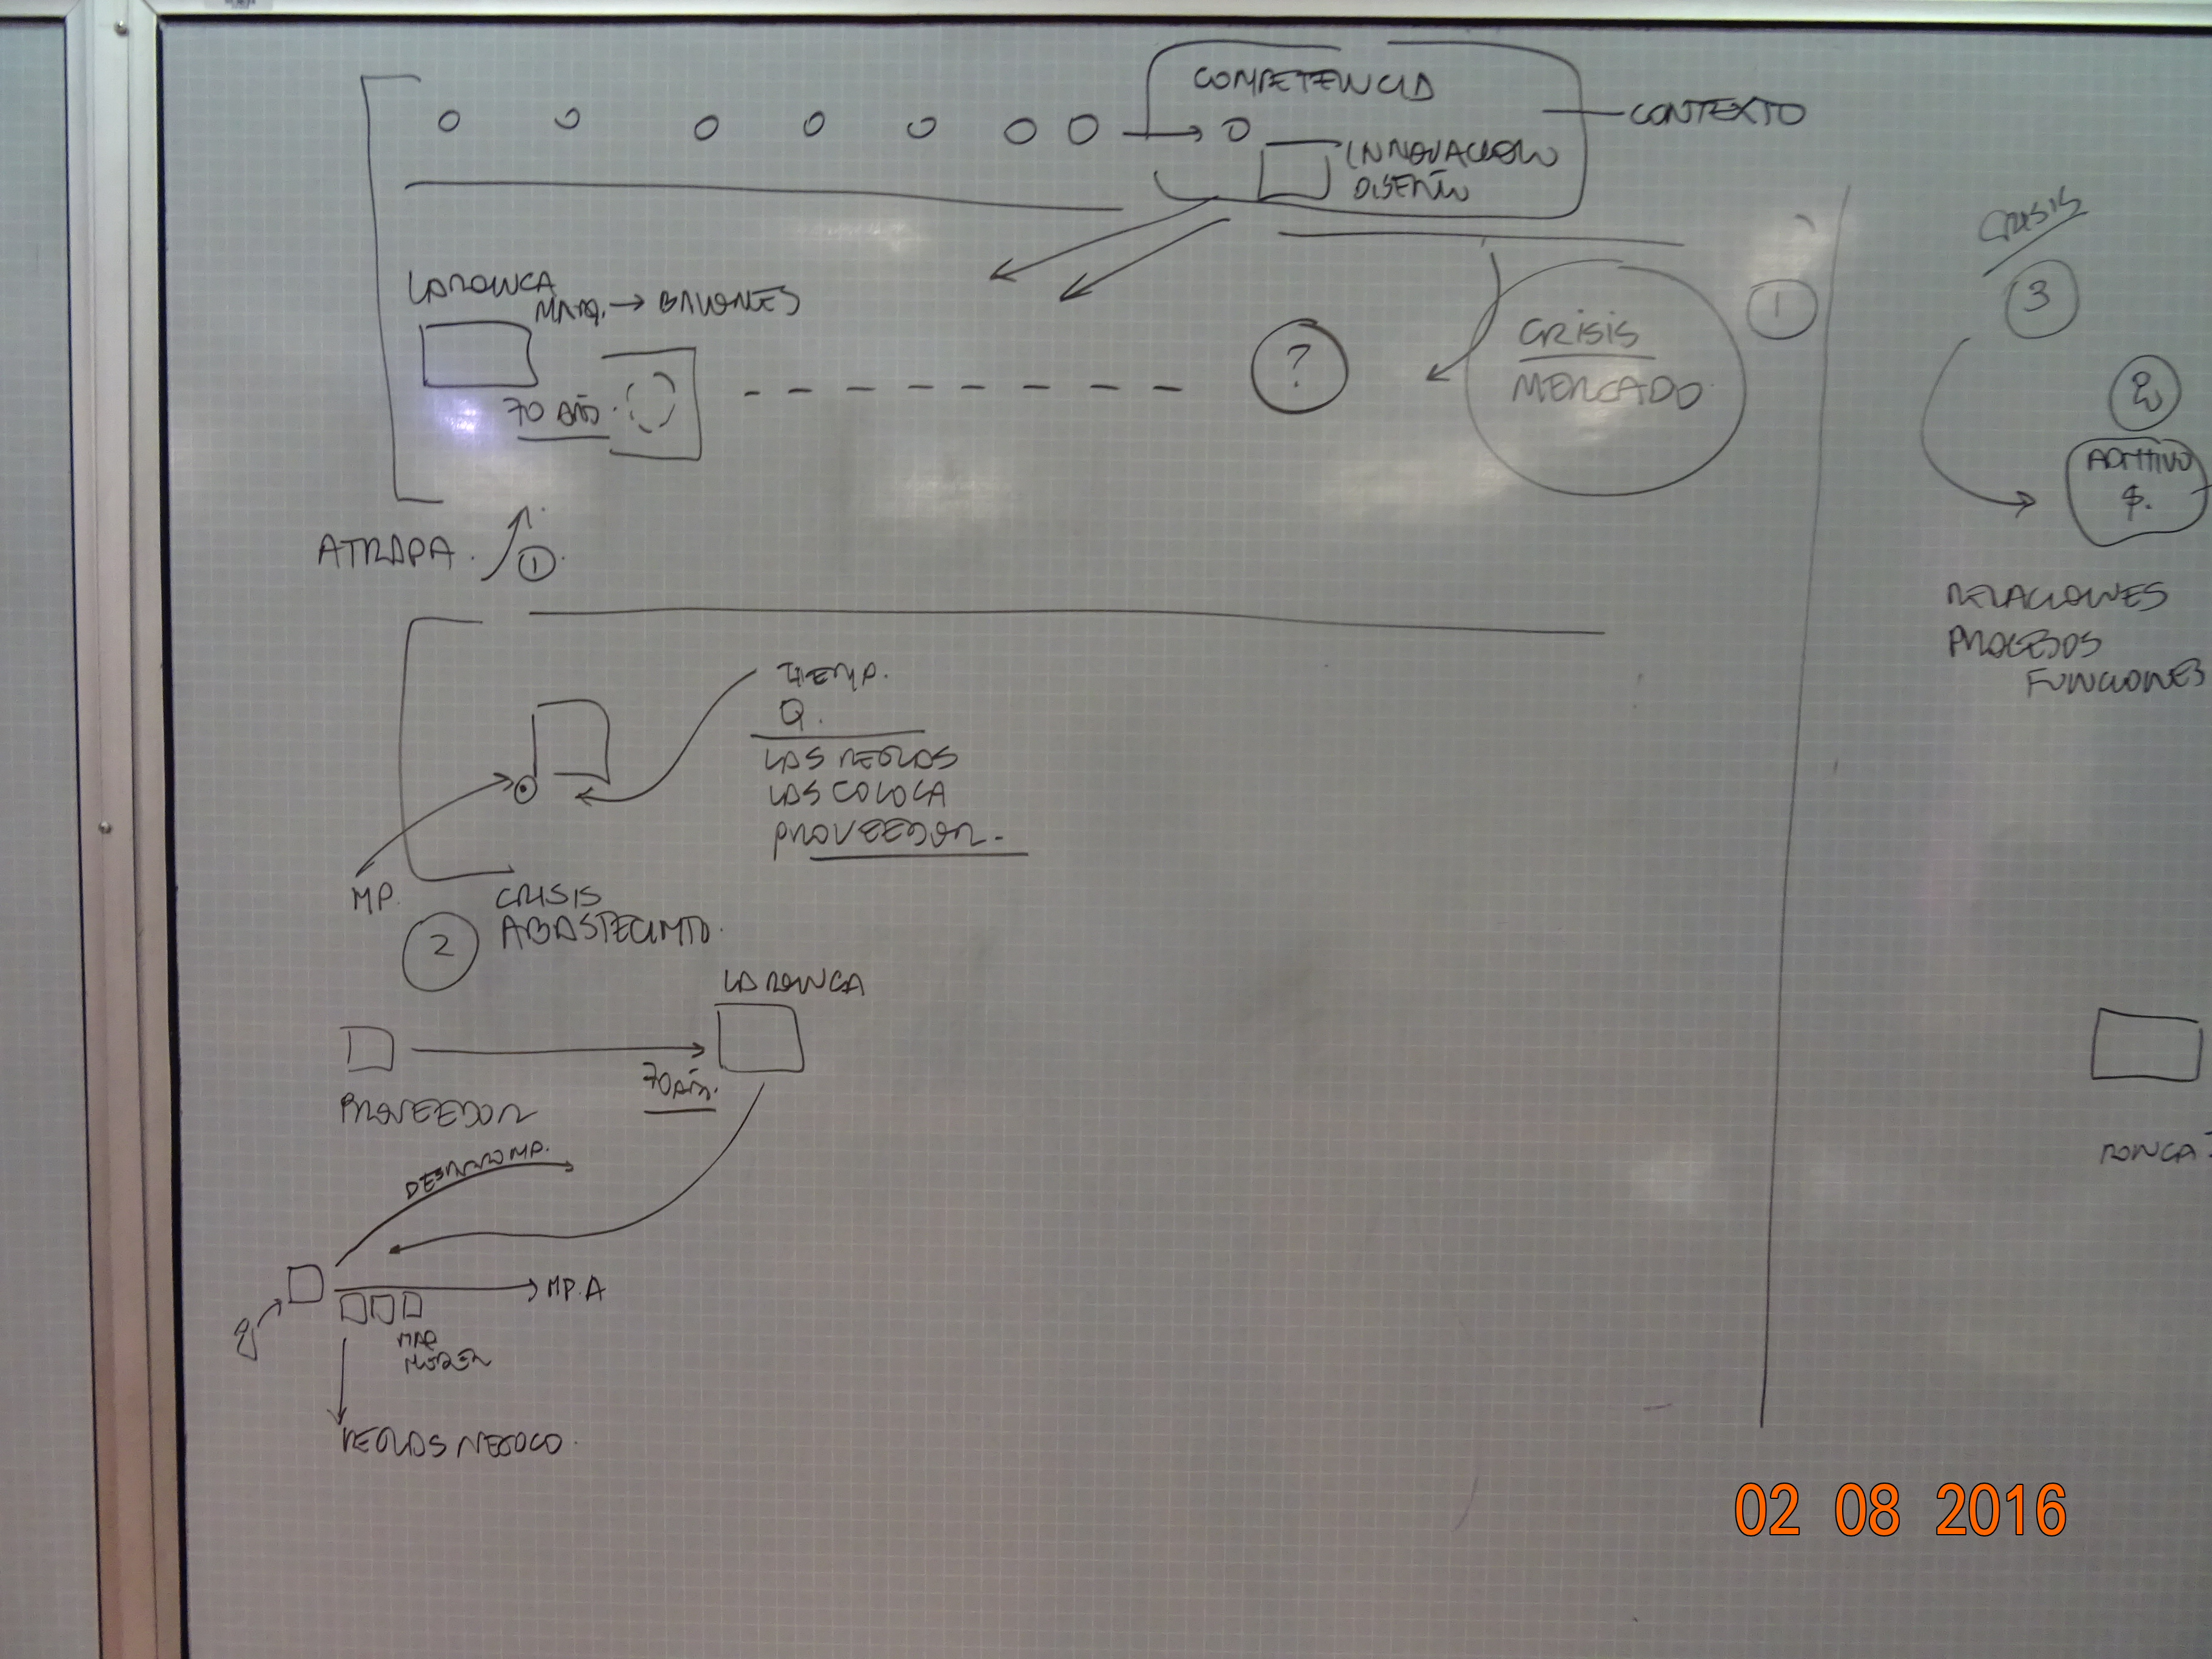 COMPETENCIA
CONTEXTO
INNOVACION
DISEÑO
LA RONCA
MAQ. → BALONES
70 AÑOS.
?
CRISIS
MERCADO
1
ATRAPA.
1
TIEMP.
Q.
LAS REGLAS
LAS COLOCA
PROVEEDOR.
MP.
CRISIS
ABASTECIMTO.
2
LA RONCA
70 AÑ.
PROVEEDOR
DESARROMP.
MP. A
MAQ
REGLAS NEGOCO.
CRISIS
3
ADITIVO
$.
RELACIONES
PROCESOS
FUNCIONES
RONCA
02 08 2016